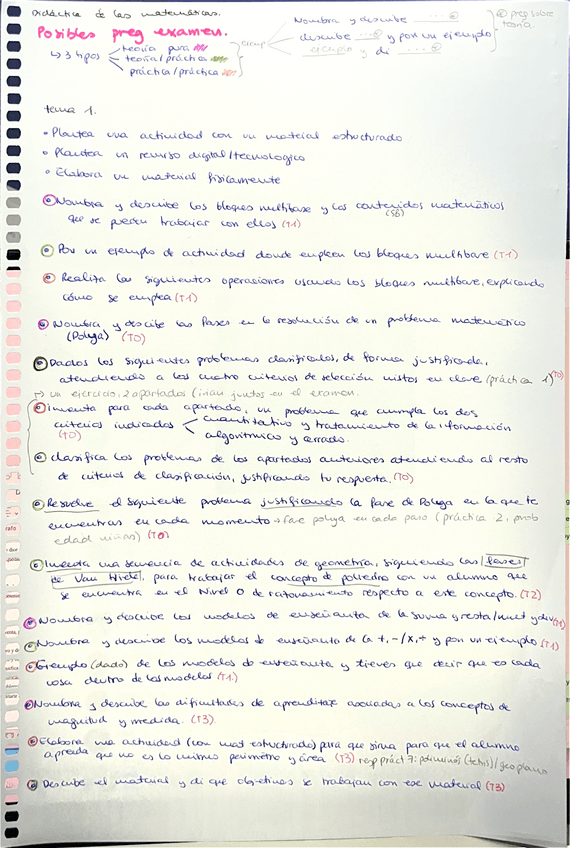 Didáctica de las matemáticas.
Posibles preg examen.
↳ 3 tipos
teoría pura
teoría/práctica
práctica/práctica
ejemp
Nombra y describe ......
describe ... y pon un ejemplo
ejemplo y di ...
preg sobre teoría.
tema 1.
• Plantea una actividad con un material estructurado
• Plantea un recurso digital/tecnologico
• Elabora un material físicamente
Nombra y describe los bloques multibase y los contenidos matemáticos
que se pueden trabajar con ellos (T1)
Pon un ejemplo de actividad donde empleen los bloques multibase (T1)
Realiza las siguientes operaciones usando los bloques multibase, explicando
cómo se emplea (T1)
Nombra y describe las fases en la resolución de un problema matemático
(Polya) (T0)
Dados los siguientes problemas clasificalos, de forma justificada,
atendiendo a los cuatro criterios de selección vistos en clase (práctica 1) (T0)
→ un ejercicio, 2 apartados (irían juntos en el examen.
inventa para cada apartado, un problema que cumpla los dos
criterios indicados
(T0)
cuantitativo y tratamiento de la información
algoritmico y cerrado.
clasifica los problemas de los apartados anteriores atendiendo al resto
de criterios de clasificación, justificando tu respuesta. (T0)
Resuelve el siguiente problema justificando la fase de Polya en la que te
encuentras en cada momento → fase polya en cada paso (práctica 2, prob
edad niños) (T0)
Inventa una secuencia de actividades de geometría, siguiendo las fases
de Van Hiele, para trabajar el concepto de poliedro con un alumno que
se encuentra en el Nivel 0 de razonamiento respecto a este concepto. (T2)
Nombra y describe los modelos de enseñanza de la suma y resta/mult y div (T1)
Nombra y describe los modelos de enseñanza de la +, - /x, ÷ y pon un ejemplo (T1)
Ejemplo (dado) de los modelos de enseñanza y tienes que decir que es cada
cosa dentro de los modelos (T1.)
Nombra y describe las dificultades de aprendizaje asociadas a los conceptos de
magnitud y medida. (T3).
Elabora una actividad (con mat estructurado) para que sirva para que el alumno
aprenda que no es lo mismo perimetro y área (T3) resp práct 7: poliminós (tetris)/geoplano
Describe el material y di que objetivos se trabajan con ese material (T3)